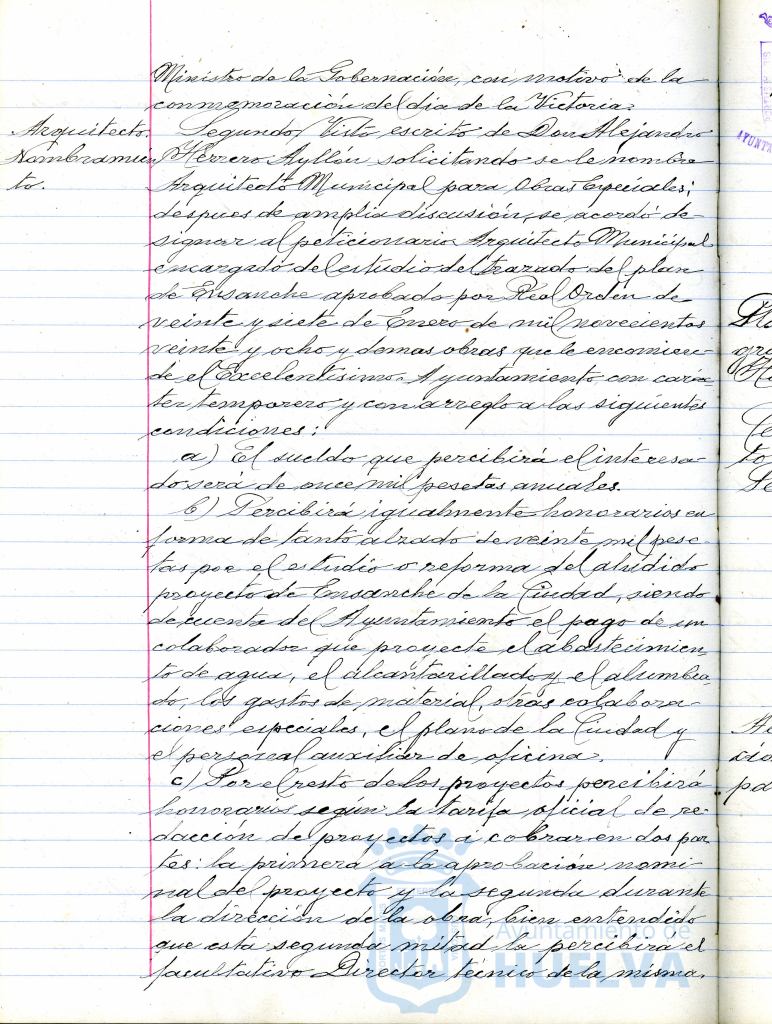 Ministro de la Gobernación, con motivo de la
conmemoración del dia de la Victoria.
Arquitecto.
Nombramien
to.
Segundo/ Visto escrito de Don Alejandro
Herrero Ayllón solicitando se le nombre
Arquitecto Municipal para Obras Especiales;
despues de amplia discusión, se acordó de-
signar al peticionario Arquitecto Municipal
encargado del estudio del trazado del plan
de Ensanche aprobado por Real Orden de
veinte y siete de Enero de mil novecientos
veinte y ocho y demas obras que le encomien-
de el Excelentisimo Ayuntamiento con carac-
ter temporero y con arreglo a las siguientes
condiciones:
a) El sueldo que percibirá el interesa-
do será de once mil pesetas anuales.
b) Percibirá igualmente honorarios en
forma de tanto alzado de veinte mil pese-
tas por el estudio o reforma del aludido
proyecto de Ensanche de la Ciudad, siendo
de cuenta del Ayuntamiento el pago de un
colaborador que proyecte el abastecimien-
to de agua, el alcantarillado y el alumbra-
do, los gastos de material, otras colabora-
ciones especiales, el plano de la Ciudad y
el personal auxiliar de oficina.
c) Por el resto de los proyectos percibirá
honorarios según la tarifa oficial de re-
dacción de proyectos a cobrar en dos par-
tes: la primera a la aprobación nomi-
nal del proyecto y la segunda durante
la dirección de la obra, bien entendido
que esta segunda mitad la percibirá el
facultativo Director técnico de la misma.
Ayuntamiento de
HUELVA